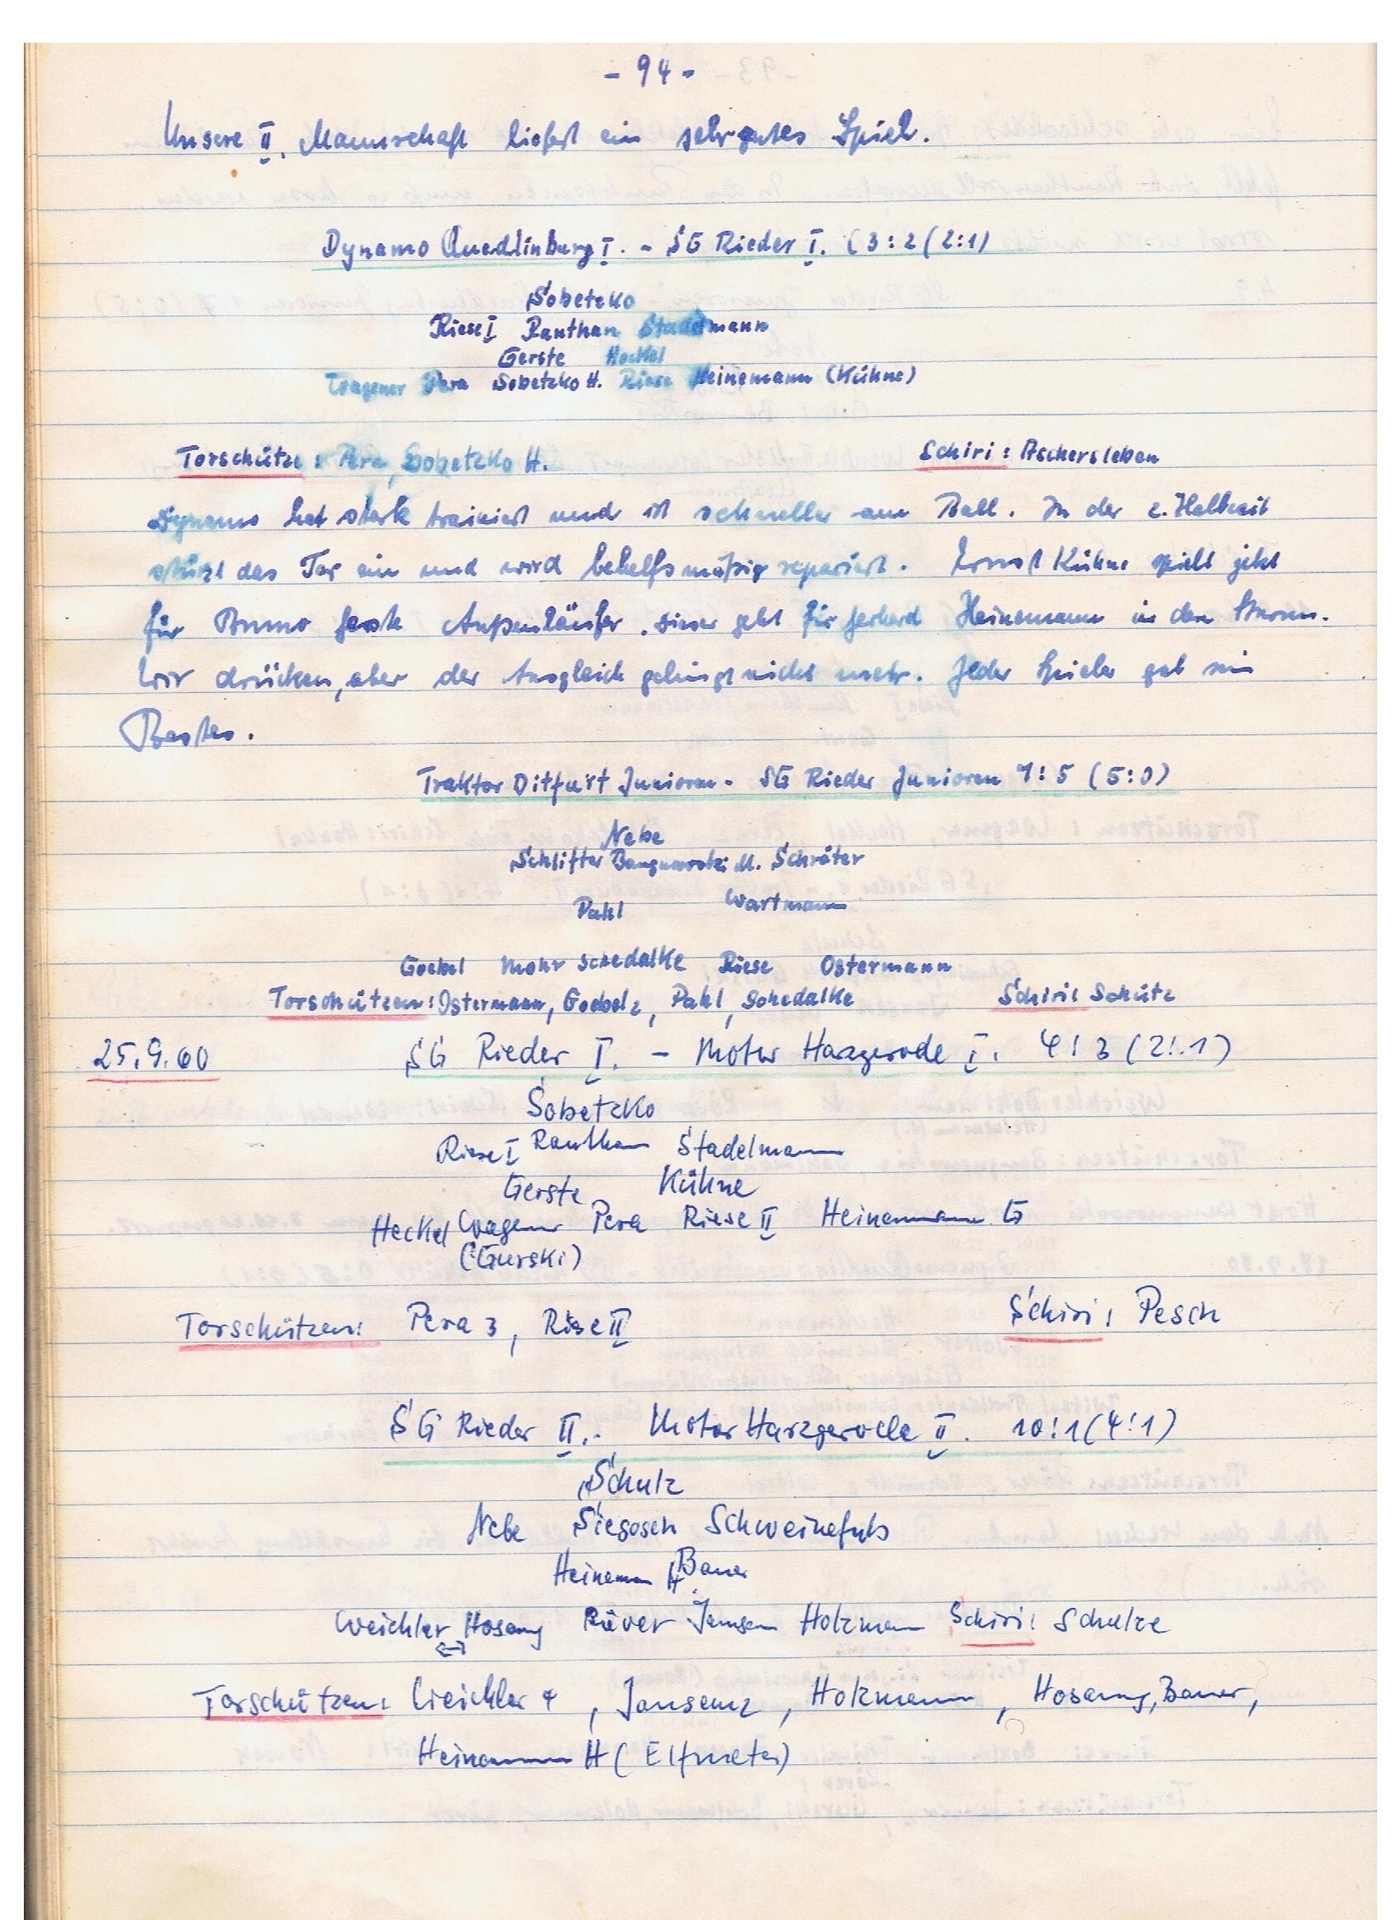 - 94 -
Unsere II. Mannschaft liefert ein sehr gutes Spiel.
Dynamo Quedlinburg I. - SG Rieder I. (3:2 (2:1)
Sobetzko
Riese I Rauthan Stadelmann
Gerste Heckel
Wagener Pera Sobetzko H. Riese Heinemann (Kühne)
Torschütze: Pera, Sobetzko H. Schiri: Aschersleben
Dynamo hat stark trainiert und ist schneller am Ball. In der 2. Halbzeit
stürzt das Tor ein und wird behelfsmäßig repariert. Ernst Kühne spielt jetzt
für Bruno Außenläufer. Dieser geht für Gerhard Heinemann in den Sturm.
Wir drücken, aber der Ausgleich gelingt nicht mehr. Jeder Spieler gab sein
Bestes.
Traktor Ditfurt Junioren - SG Rieder Junioren 7:5 (5:0)
Nebe
Schlifter M. Schröter
Pahl Wartmann
Goebel Mohr Schedalke Riese Ostermann
Torschützen: Ostermann, Goebel 2, Pahl, Schedalke Schiri: Schütz
25.9.60 SG Rieder I. - Motor Harzgerode I. 4:3 (2:1)
Sobetzko
Riese I Rauthan Stadelmann
Gerste Kühne
Heckel Wagener Pera Riese II Heinemann G
(Gurski)
Torschützen: Pera 3, Riese II Schiri: Pesch
SG Rieder II. - Motor Harzgerode II. 10:1 (4:1)
Schulz
Nebe Siegosch Schweinefuß
Heinemann H. Bauer
Weichler Hosang Röver Jansen Holzmann Schiri: Schulze
↔
Torschützen: Weichler 4, Jansen 2, Holzmann, Hosang, Bauer,
Heinemann H (Elfmeter)